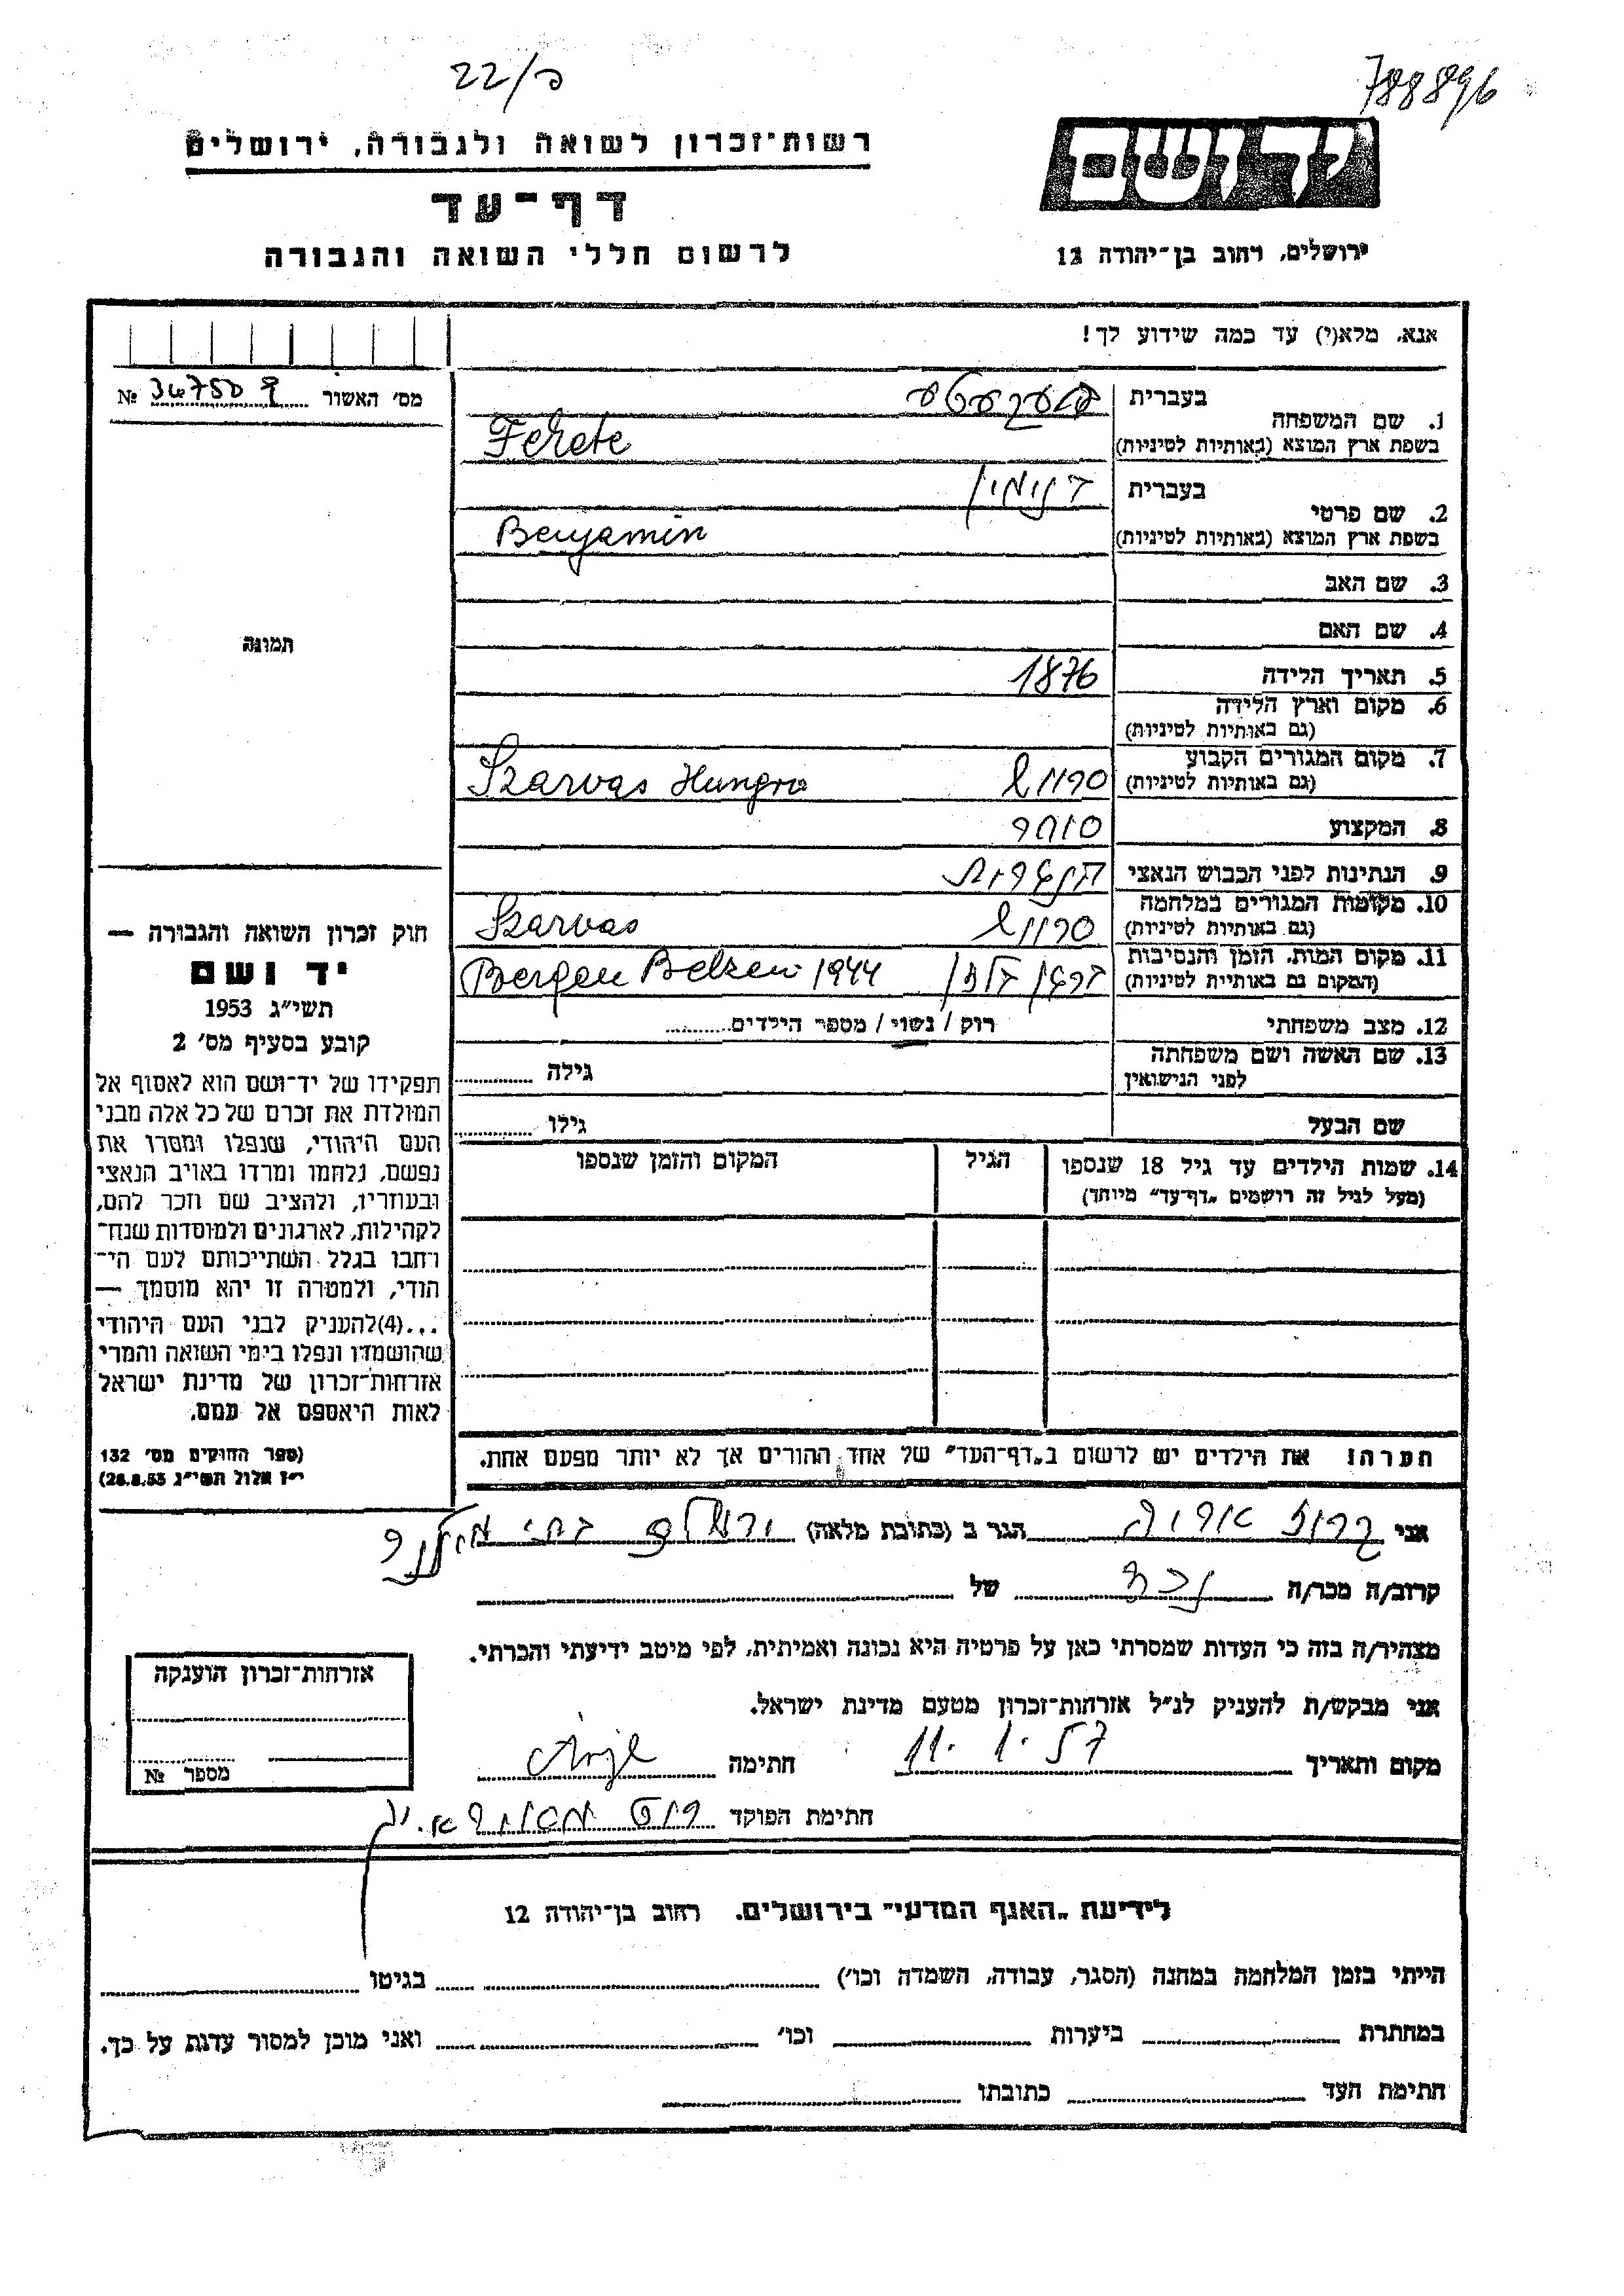 22/פ
788896
רשות־זכרון לשואה ולגבורה, ירושלים
דף־עד
לרשום חללי השואה והגבורה
יד ושם
ירושלים, רחוב בן־יהודה 12
אנא, מלא(י) עד כמה שידוע לך!
מס׳ האשור № 36750
1. שם המשפחה
בעברית
בשפת ארץ המוצא (באותיות לטיניות) Ferete
2. שם פרטי
בעברית בנימין
בשפת ארץ המוצא (באותיות לטיניות) Benjamin
3. שם האב
4. שם האם
תמונה
5. תאריך הלידה 1876
6. מקום וארץ הלידה
(גם באותיות לטיניות)
7. מקום המגורים הקבוע
(גם באותיות לטיניות) סרווש Szarvas Hungro
8. המקצוע סוחר
9. הנתינות לפני הכבוש הנאצי הונגרית
10. מקומות המגורים במלחמה
(גם באותיות לטיניות) סרווש Szarvas
11. מקום המות, הזמן והנסיבות
(המקום גם באותיית לטיניות) ברגן בלזן Bergen Belzen 1944
12. מצב משפחתי רוק / נשוי / מספר הילדים
13. שם האשה ושם משפחתה
לפני הנישואין גילה
שם הבעל גילו
14. שמות הילדים עד גיל 18 שנספו הגיל המקום והזמן שנספו
(מעל לגיל זה רושמים „דף־עד״ מיוחד)
חוק זכרון השואה והגבורה —
יד ושם
תשי״ג 1953
קובע בסעיף מס׳ 2
תפקידו של יד־ושם הוא לאסוף אל
המולדת את זכרם של כל אלה מבני
העם היהודי, שנפלו ומסרו את
נפשם, נלחמו ומרדו באויב הנאצי
ובעוזריו, ולהציב שם וזכר להם,
לקהילות, לארגונים ולמוסדות שנח־
רבו בגלל השתייכותם לעם הי־
הודי, ולמטרה זו יהא מוסמך —
...(4)להעניק לבני העם היהודי
שהושמדו ונפלו בימי השואה והמרי
אזרחות־זכרון של מדינת ישראל
לאות היאספם אל עמם.
(ספר החוקים מס׳ 132
י״ז אלול תשי״ג 28.8.53)
הערה! את הילדים יש לרשום ב„דף־העד״ של אחד ההורים אך לא יותר מפעם אחת.
אני הגר ב (כתובת מלאה) ירושלים
קרוב/ה מכר/ה נכד של
מצהיר/ה בזה כי העדות שמסרתי כאן על פרטיה היא נכונה ואמיתית, לפי מיטב ידיעתי והכרתי.
אני מבקש/ת להעניק לנ״ל אזרחות־זכרון מטעם מדינת ישראל.
מקום ותאריך 11. 1. 57 חתימה
חתימת הפוקד
אזרחות־זכרון הוענקה
מספר №
לידיעת „האגף המדעי״ בירושלים. רחוב בן־יהודה 12
הייתי בזמן המלחמה במחנה (הסגר, עבודה, השמדה וכו׳) בגיטו
במחתרת ביערות וכו׳ ואני מוכן למסור עדות על כך.
חתימת העד כתובתו